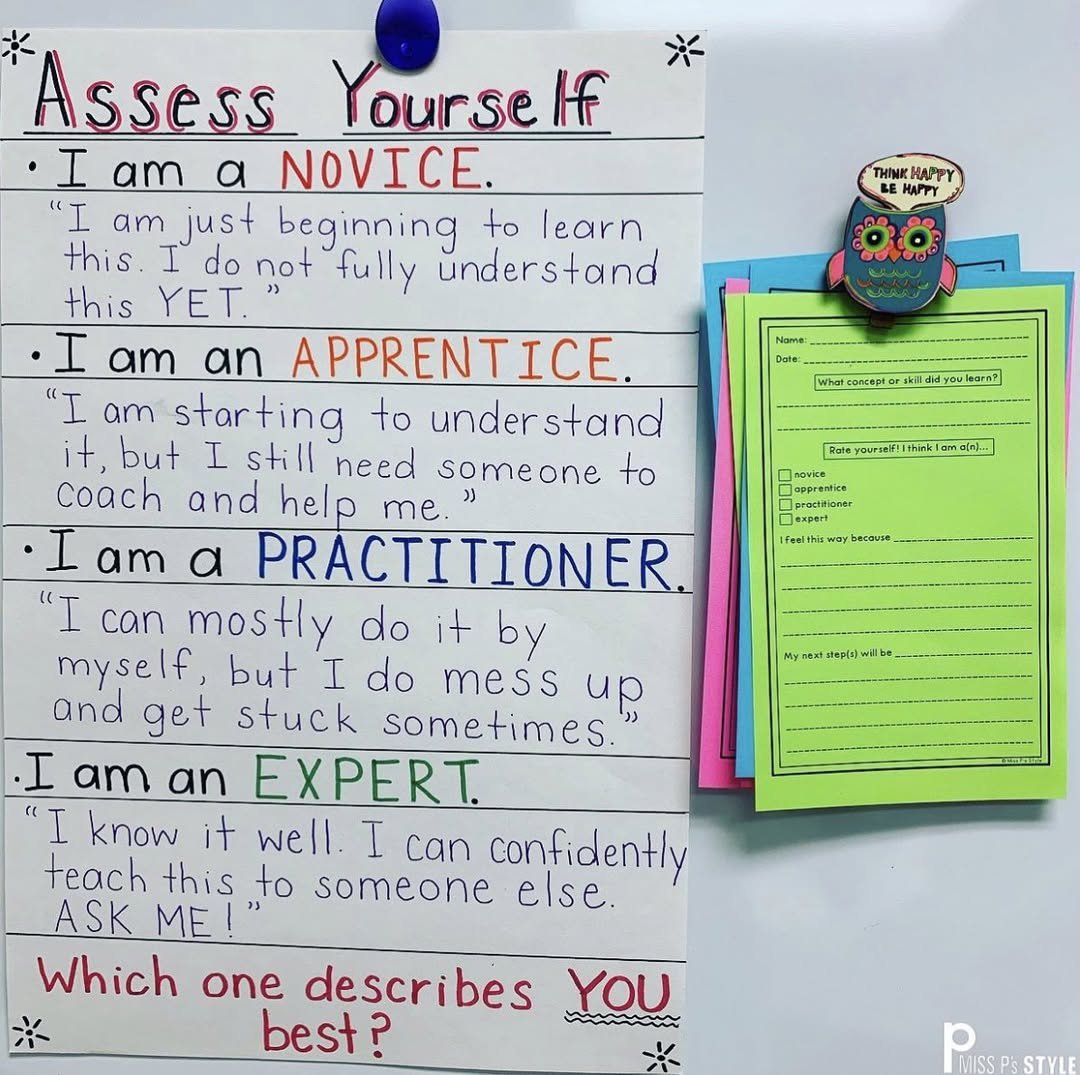 Assess Yourself
· I am a NOVICE.
“I am just beginning to learn
this. I do not fully understand
this YET.”
· I am an APPRENTICE.
“I am starting to understand
it, but I still need someone to
coach and help me.”
· I am a PRACTITIONER.
“I can mostly do it by
myself, but I do mess up
and get stuck sometimes.”
· I am an EXPERT.
“I know it well. I can confidently
teach this to someone else.
ASK ME!”
Which one describes YOU
best?
THINK HAPPY
BE HAPPY
Name:
Date:
What concept or skill did you learn?
Rate yourself! I think I am a(n)...
novice
apprentice
practitioner
expert
I feel this way because
My next step(s) will be
© Miss P's Style
P MISS P's STYLE